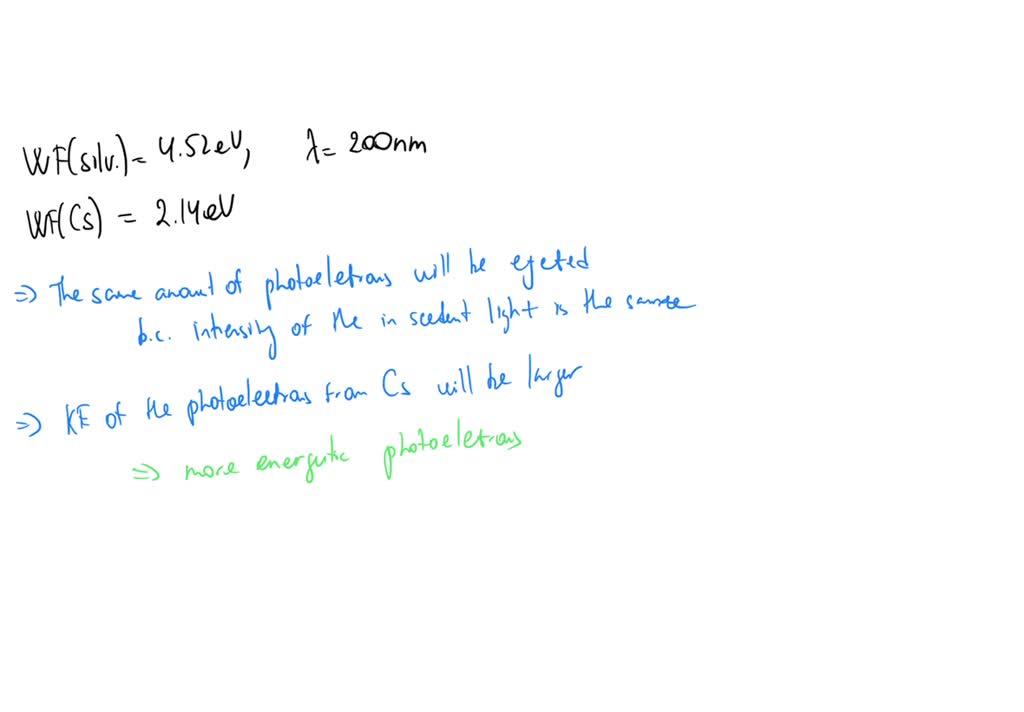 WF(silv.) = 4.52 eV, λ = 200nm
WF(Cs) = 2.14eV
⇒ The same amount of photoeletrons will be ejeted
b.c. intensity of the in scedent light is the same
⇒ KE of the photoelectrons from Cs will be larger
⇒ more energetic photoeletrons